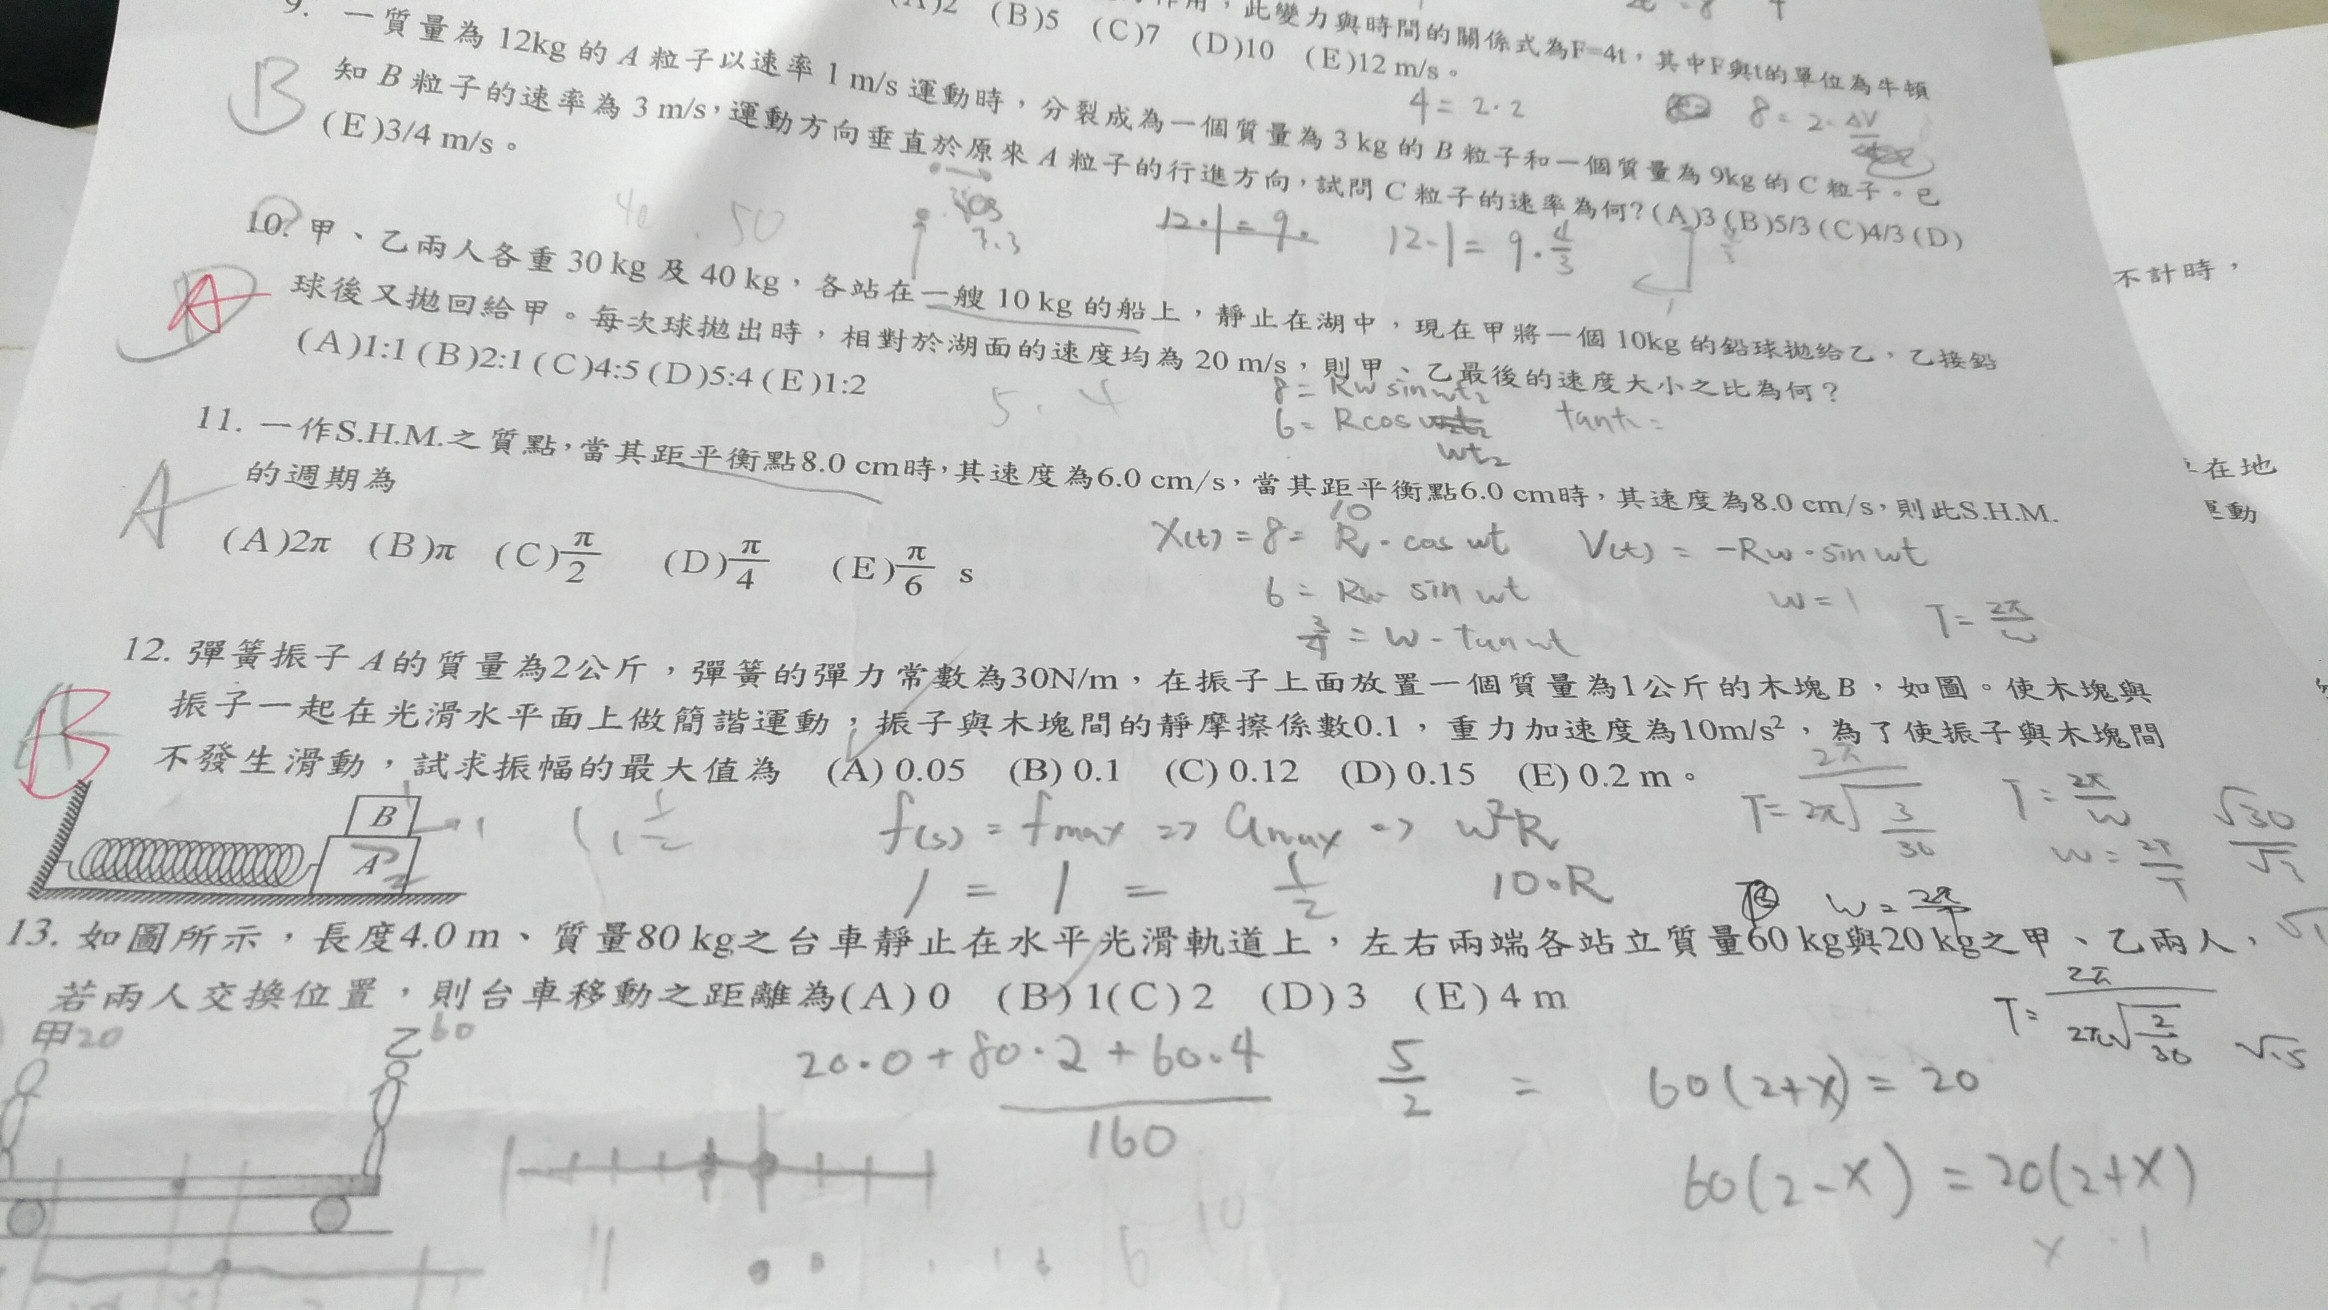 用，此變力與時間的關係式為F=4t，其中F與t的單位為牛頓
(A)2 (B)5 (C)7 (D)10 (E)12 m/s。
4=2·2
8=2·ΔV
9. 一質量為 12kg 的 A 粒子以速率 1 m/s 運動時，分裂成為一個質量為 3 kg 的 B 粒子和一個質量為 9kg 的 C 粒子。已
B
知 B 粒子的速率為 3 m/s，運動方向垂直於原來 A 粒子的行進方向，試問 C 粒子的速率為何？(A)3 (B)5/3 (C)4/3 (D)
(E)3/4 m/s。
3.3
12·1=9.
12-1=9·4/3
50
10. 甲、乙兩人各重 30 kg 及 40 kg，各站在一艘 10 kg 的船上，靜止在湖中，現在甲將一個 10kg 的鉛球拋給乙，乙接鉛
A
球後又拋回給甲。每次球拋出時，相對於湖面的速度均為 20 m/s，則甲、乙最後的速度大小之比為何？
(A)1:1 (B)2:1 (C)4:5 (D)5:4 (E)1:2
5. 4
8=Rw sinwt2
6=Rcos
wt2
11. 一作S.H.M.之質點，當其距平衡點8.0 cm時，其速度為6.0 cm/s，當其距平衡點6.0 cm時，其速度為8.0 cm/s，則此S.H.M.
A
的週期為
(A)2π (B)π (C)π/2 (D)π/4 (E)π/6 s
10
X(t)=8=R·cos wt
V(t)=-Rw·sin wt
6=Rw sin wt
w=1
T=2π/w
3/4=w-tan wt
12. 彈簧振子 A 的質量為2公斤，彈簧的彈力常數為30N/m，在振子上面放置一個質量為1公斤的木塊 B，如圖。使木塊與
B
振子一起在光滑水平面上做簡諧運動，振子與木塊間的靜摩擦係數0.1，重力加速度為10m/s²，為了使振子與木塊間
不發生滑動，試求振幅的最大值為 (A) 0.05 (B) 0.1 (C) 0.12 (D) 0.15 (E) 0.2 m。
B
A
f(s)=fmax => amax => w²R
1 = 1 = 1/2 10·R
T=2π√3/30
T=2π/w
w=2π/T
w=2π/T
13. 如圖所示，長度4.0 m、質量80 kg之台車靜止在水平光滑軌道上，左右兩端各站立質量60 kg與20 kg之甲、乙兩人，
若兩人交換位置，則台車移動之距離為(A) 0 (B) 1(C) 2 (D) 3 (E) 4 m
甲20
乙60
20·0+80·2+60·4
160
5/2 =
60(2+x)=20
60(2-x)=20(2+x)
不計時，
在地
運動